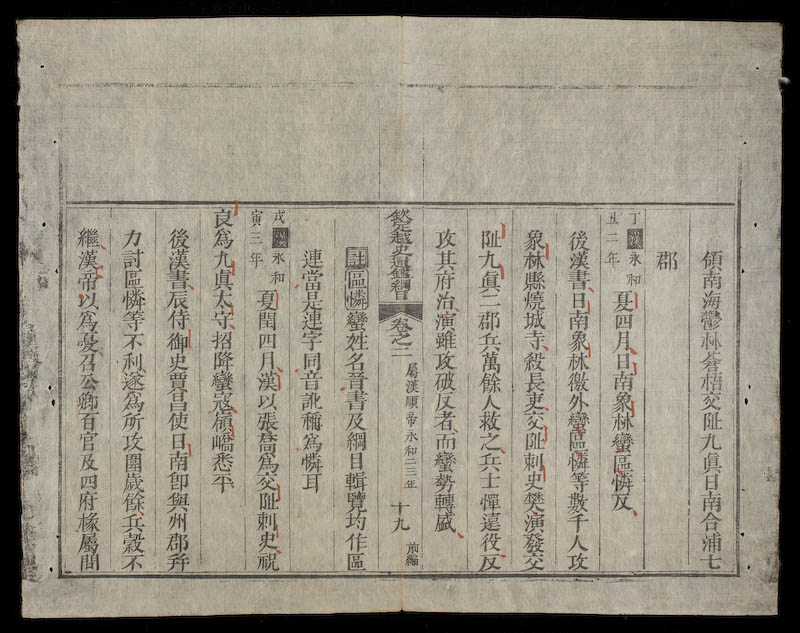 領南海鬱林蒼梧交趾九真日南合浦七
郡
丁丑二年漢永和夏四月日南象林蠻區憐反
後漢書日南象林徼外蠻區憐等數千人攻
象林縣燒城寺殺長吏交趾刺史樊演發交
趾九眞二郡兵萬餘人救之兵士憚遠役反
攻其府治演雖攻破反者而蠻勢轉盛
欽定越史通鑑綱目 卷之二 屬漢順帝永和二三年 十九 前編
註區憐蠻姓名晉書及綱目輯覽均作區
連當是連字同音訛稱爲憐耳
戊寅三年漢永和夏閏四月漢以張喬爲交趾刺史祝
良爲九眞太守招降蠻寇嶺嶠悉平
後漢書辰侍御史賈昌使日南卽與州郡幷
力討區憐等不利遂爲所攻圍歲餘兵穀不
繼漢帝以爲憂召公卿百官及四府掾屬問